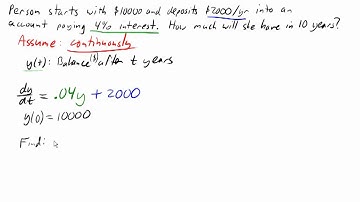 Person starts with $10000 and deposits $2000/yr into an
account paying 4% interest. How much will she have in 10 years?
Assume: continuously
y(t): Balance($) after t years
dy/dt = .04y + 2000
y(0) = 10000
Find: